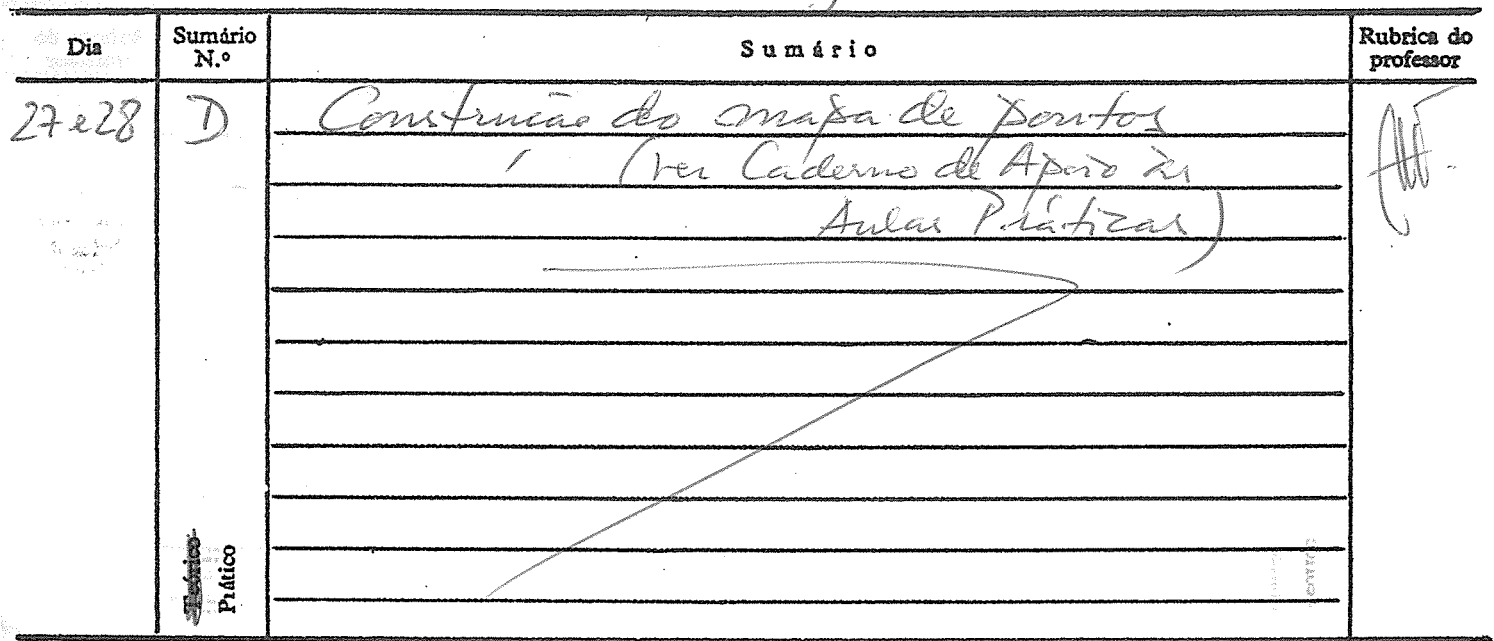 Dia Sumário N.º Sumário Rubrica do professor
27 e 28 D Construção do mapa de pontos
(ver Caderno de Apoio às
Aulas Práticas)
Teórico
Prático